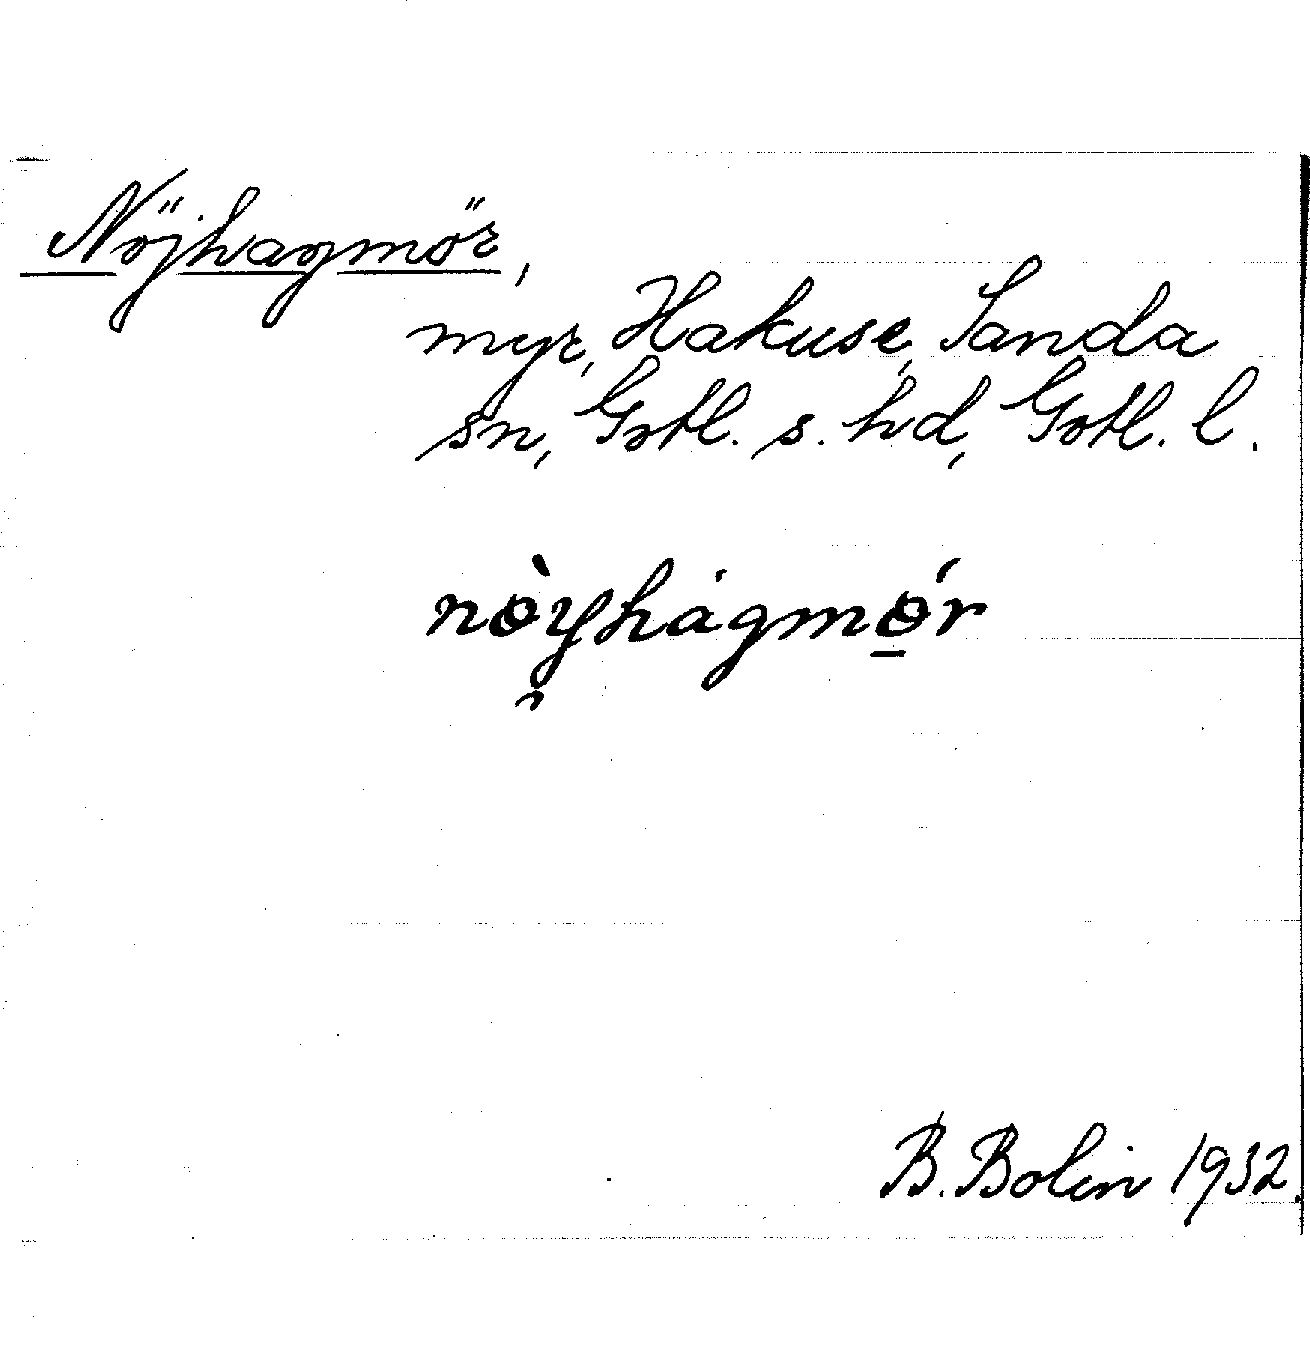 Nöjhagmör,
myr, Hakuse, Sanda
sn, Gotl. s. hd, Gotl. l.
nø̀y̑hȧgmǿ̠r
B. Bolin 1932.